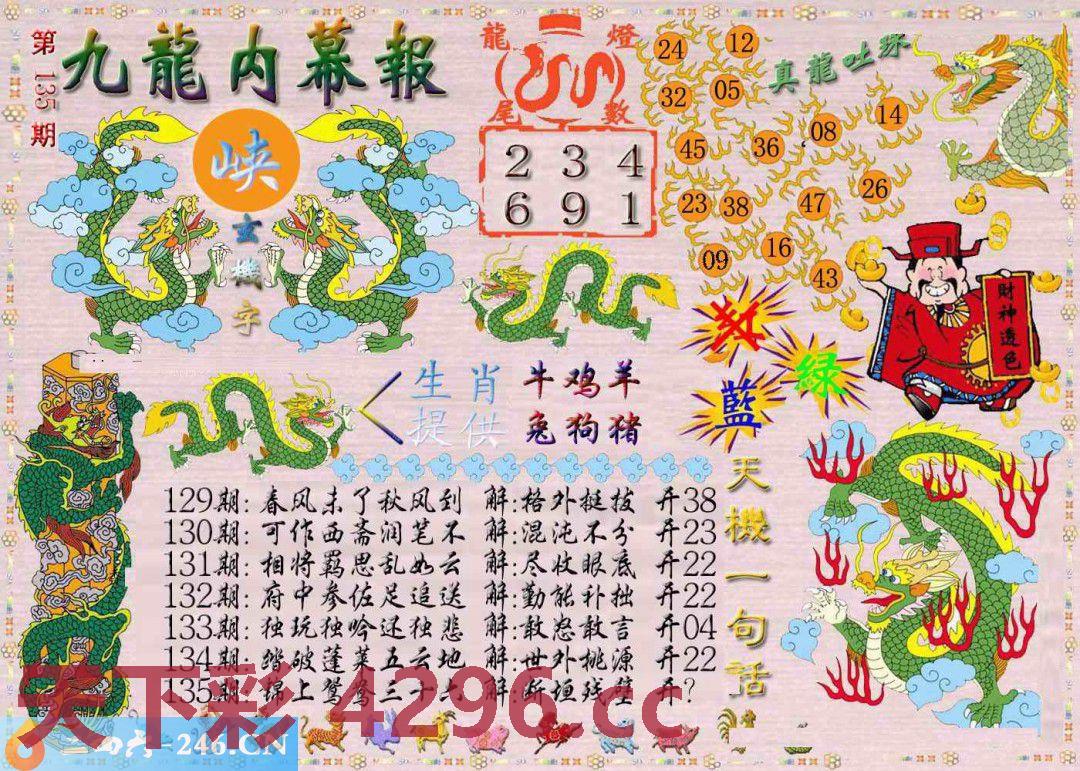 第135期
九龍内幕報
峡
玄機字
龍燈
尾數
2 3 4
6 9 1
真龍吐珠
24 12
32 05
14
08
45 36
26
47
23 38
16
09
43
財神透色
红
绿
藍
生肖 牛鸡羊
提供 兔狗猪
天機一句話
129期: 春风未了秋风到 解:格外挺拔 开38
130期: 可作西斋润笔不 解:混沌不分 开23
131期: 相将羁思乱如云 解:尽收眼底 开22
132期: 府中参佐足追送 解:勤能补拙 开22
133期: 独玩独吟还独悲 解:敢怒敢言 开04
134期: 踏破蓬莱五云地 解:世外桃源 开22
135期: 锦上鸳鸯三十六 解:断垣残壁 开?
天下彩 4296.cc
246.CN